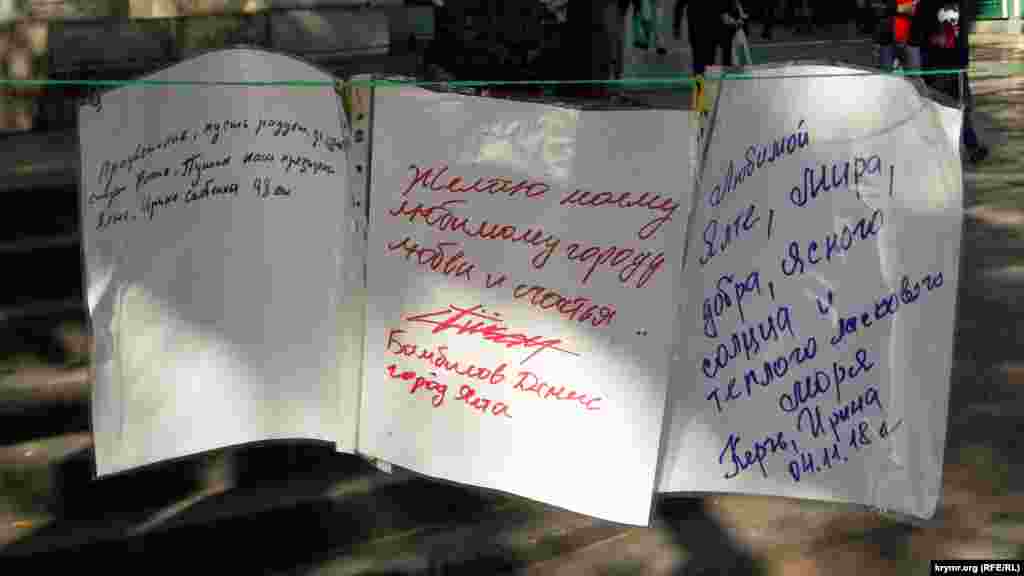 Процветания, пусть радует
Ялта. Пусть наш
Ялта. Ирина
Желаю моему
любимому городу
любви и счастья...
Бамбилов Денис
город Ялта
Любимой
Ялте, Мира,
добра, ясного
солнца и
теплого ласкового
моря
Керчь, Ирина
04.11.18 г
krymr.org (RFE/RL)